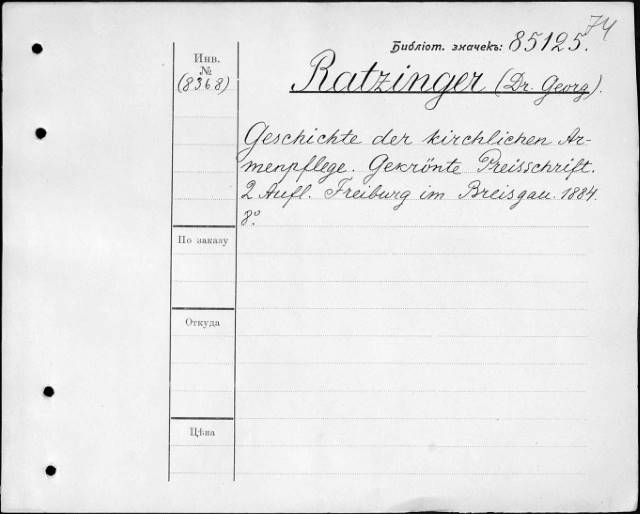 74
Библіот. значекъ: 85125.
Инв.
№
(8368)
Ratzinger (Dr. Georg).
Geschichte der kirchlichen Ar-
menpflege. Gekrönte Preisschrift.
2 Aufl. Freiburg im Breisgau. 1884.
8°.
По заказу
Откуда
Цѣна